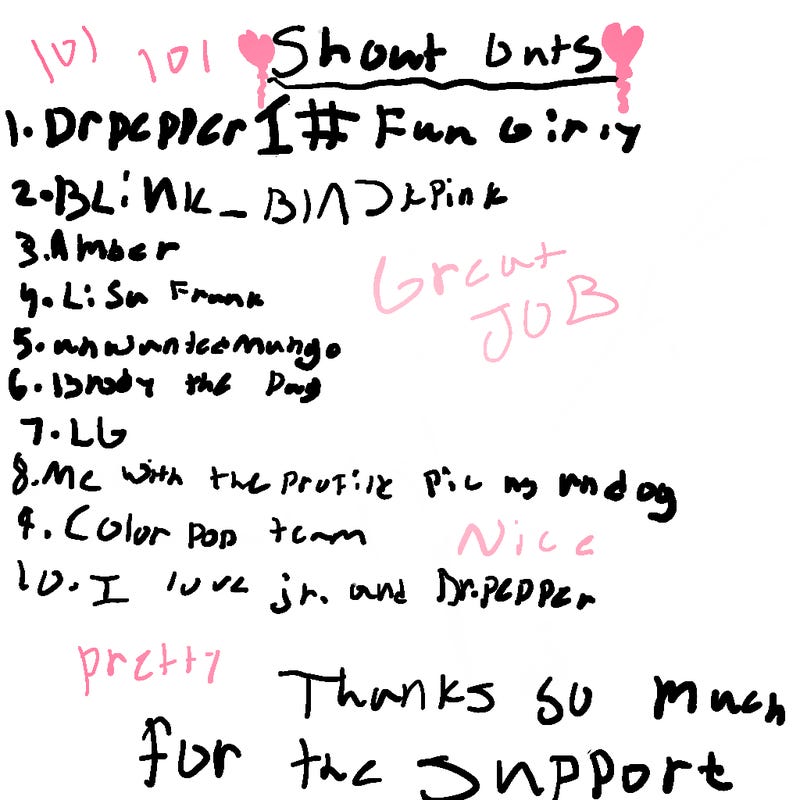 101 101 Shout outs
1. Drpepper I # Fun Girly
2. BLiNK_BlackPink
3. Amber
4. LiSa Frank
5. unwantedmango
6. Brody the Dog
7. LG
8. Me with the profile pic my
9. Color pop team
10. I love jr. and Dr.pepper
Great
JOB
Nice
pretty
Thanks so much
for the support